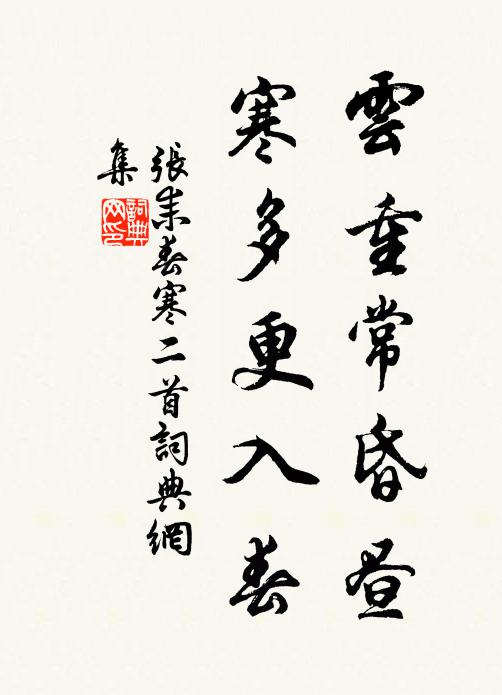 雲重常昏晝
寒多更入春
張耒春寒二首詞典網
集
詞典
网印